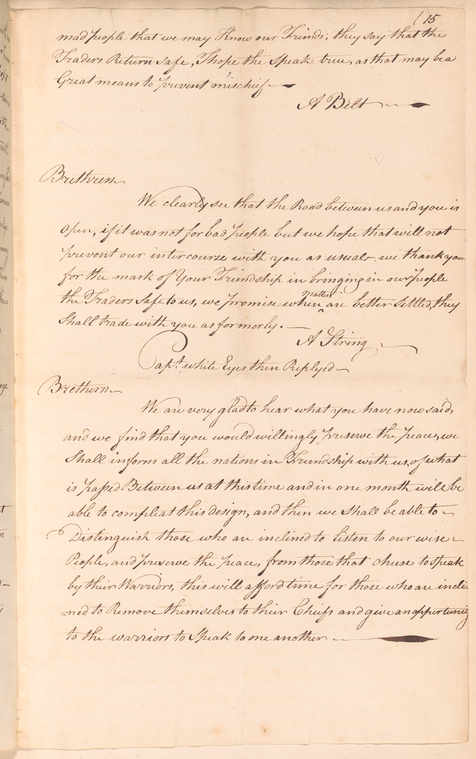 (15
mad people that we may Know our Friends, they say that the
Traders Return Safe, I hope the Speak true, as that may be a
Great means to prevent mischief
A Belt
Brethren
We clearly see that the Road between us and you is
Open, if it was not for bad people but we hope that will not
prevent our intercourse with you as usual, we thank you
for the mark of Your Friendship in bringing in our people
the Traders Safe to us, we promise when matters are better Settled, they
Shall trade with you as formerly.
A String
Capt. white Eyes then Replyed
Brethern
We are very glad to hear what you have now said,
and we find that you would willingly preserve the peace, we
Shall inform all the nations in Friendship with us, of what
is passed Between us at this time and in one month will be
able to compleat this design, and then we Shall be able to
Distinguish those who are inclined to listen to our wise
People, and preserve the peace, from those that chuse to speak
by their Warriors, this will afford time for those who are incli
ned to Remove themselves to their Chiefs and give an opportunity
to the warriors to Speak to one another